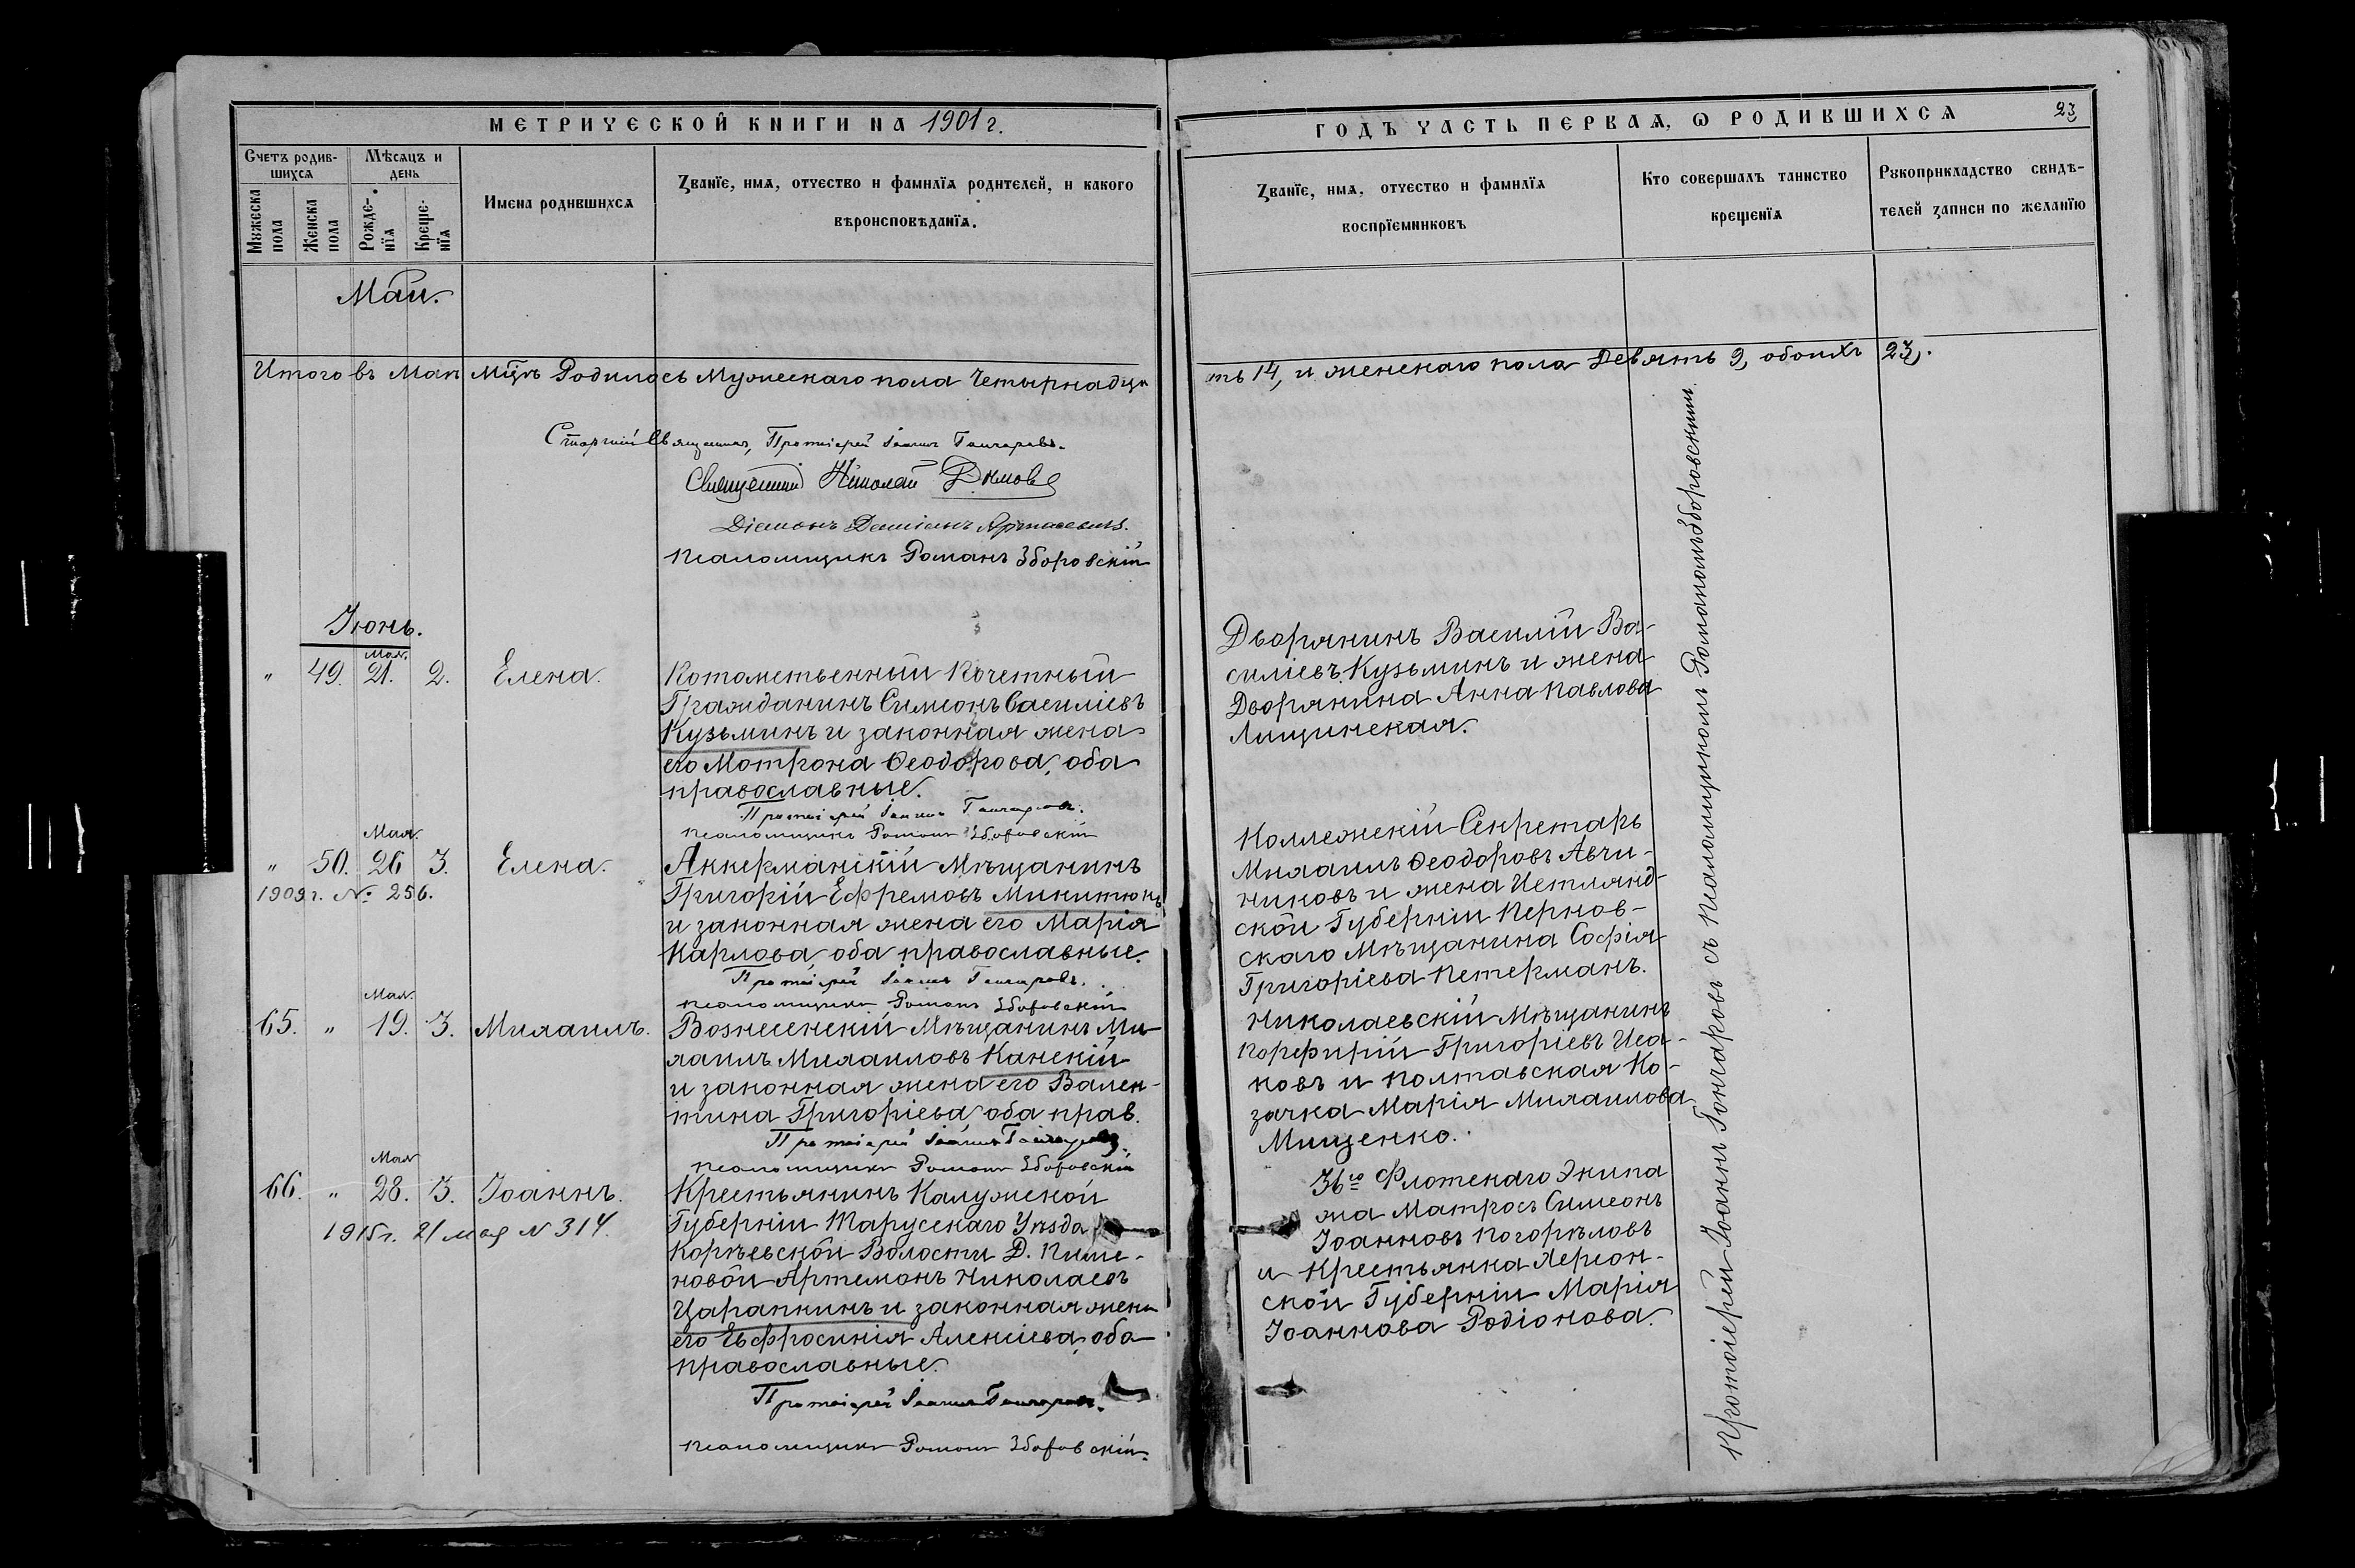 МЕТРИЧЕСКОЙ КНИГИ НА 1901 г.
Счетъ родив-
шихся
Мѣсяцъ и
день
Мужеска
пола
Женска
пола
Рожде-
нїя
Креще-
нїя
Имена родившихся
Званїе, имя, отчество и фамилїя родителей, и какого
вѣроисповѣданїя.
Май.
Итого въ Маи мц҃ѣ Родилось Мужескаго пола Четырнадца
Старшій Священникъ, Протоіерей Іоаннъ Гончаровъ.
Священникъ Николай
Діаконъ Даміанъ
Псаломщикъ Романъ Зборовскій
Іюнь.
„ 49. Мая. 21. 2. Елена.
Потомственный Почетный
Гражданинъ Симеонъ Василіевъ
Кузьминъ и законная жена
его Матрона Ѳеодорова, оба
православные.
Протоіерей Іоаннъ Гончаровъ.
Псаломщикъ Романъ Зборовскій
„ 50. Мая. 26 3. Елена.
1909 г. № 256.
Аккерманскій Мѣщанинъ
Григорій Ефремовъ Микитюкъ
и законная жена его Марія
Карлова, оба православные.
Протоіерей Іоаннъ Гончаровъ.
Псаломщикъ Романъ Зборовскій
65. „ Мая. 19. 3. Михаилъ.
Вознесенскій Мѣщанинъ Ми-
хаилъ Михаиловъ Канскій
и законная жена его Вален-
тина Григоріева оба прав.
Протоіерей Іоаннъ Гончаровъ.
Псаломщикъ Романъ Зборовскій
66. „ Мая 28. 3. Іоаннъ.
1915 г. 21 мая № 314.
Крестьянинъ Калужской
Губерніи Тарусскаго Уѣзда
Корѣевской Волости Д. Пиме-
новой Артемонъ Николаевъ
Царапкинъ и законная жена
его Евфросинія Алексіева, оба
православные.
Протоіерей Іоаннъ Гончаровъ.
Псаломщикъ Романъ Зборовскій.
ГОДЪ ЧАСТЬ ПЕРВАЯ, Ѡ РОДИВШИХСЯ
23
Званїе, имя, отчество и фамилїя
воспрїемниковъ
Кто совершалъ таинство
крещенїя
Рукоприкладство свидѣ-
телей записи по желанїю
ть 14, и женскаго пола Девять 9, обоихъ 23.
Дворянинъ Василій Ва-
силіевъ Кузьминъ и жена
Дворянина Анна Павлова
Лищинская.
Коллежскій Секретарь
Михаилъ Ѳеодоровъ Авчи-
никовъ и жена Эстлянд-
ской Губерніи Пернов-
скаго Мѣщанина Софія
Григоріева Петерманъ.
Николаевскій Мѣщанинъ
Порфирій Григоріевъ Иса-
ковъ и Полтавская Ко-
зачка Марія Михаилова
Мищенко.
36го Флотскаго Экипа
жа Матросъ Симеонъ
Іоанновъ Погорѣловъ
и Крестьянка Херсон-
ской Губерніи Марія
Іоаннова Родіонова.
Протоіерей Іоаннъ Гончаровъ съ Псаломщикомъ Романомъ Зборовскимъ.